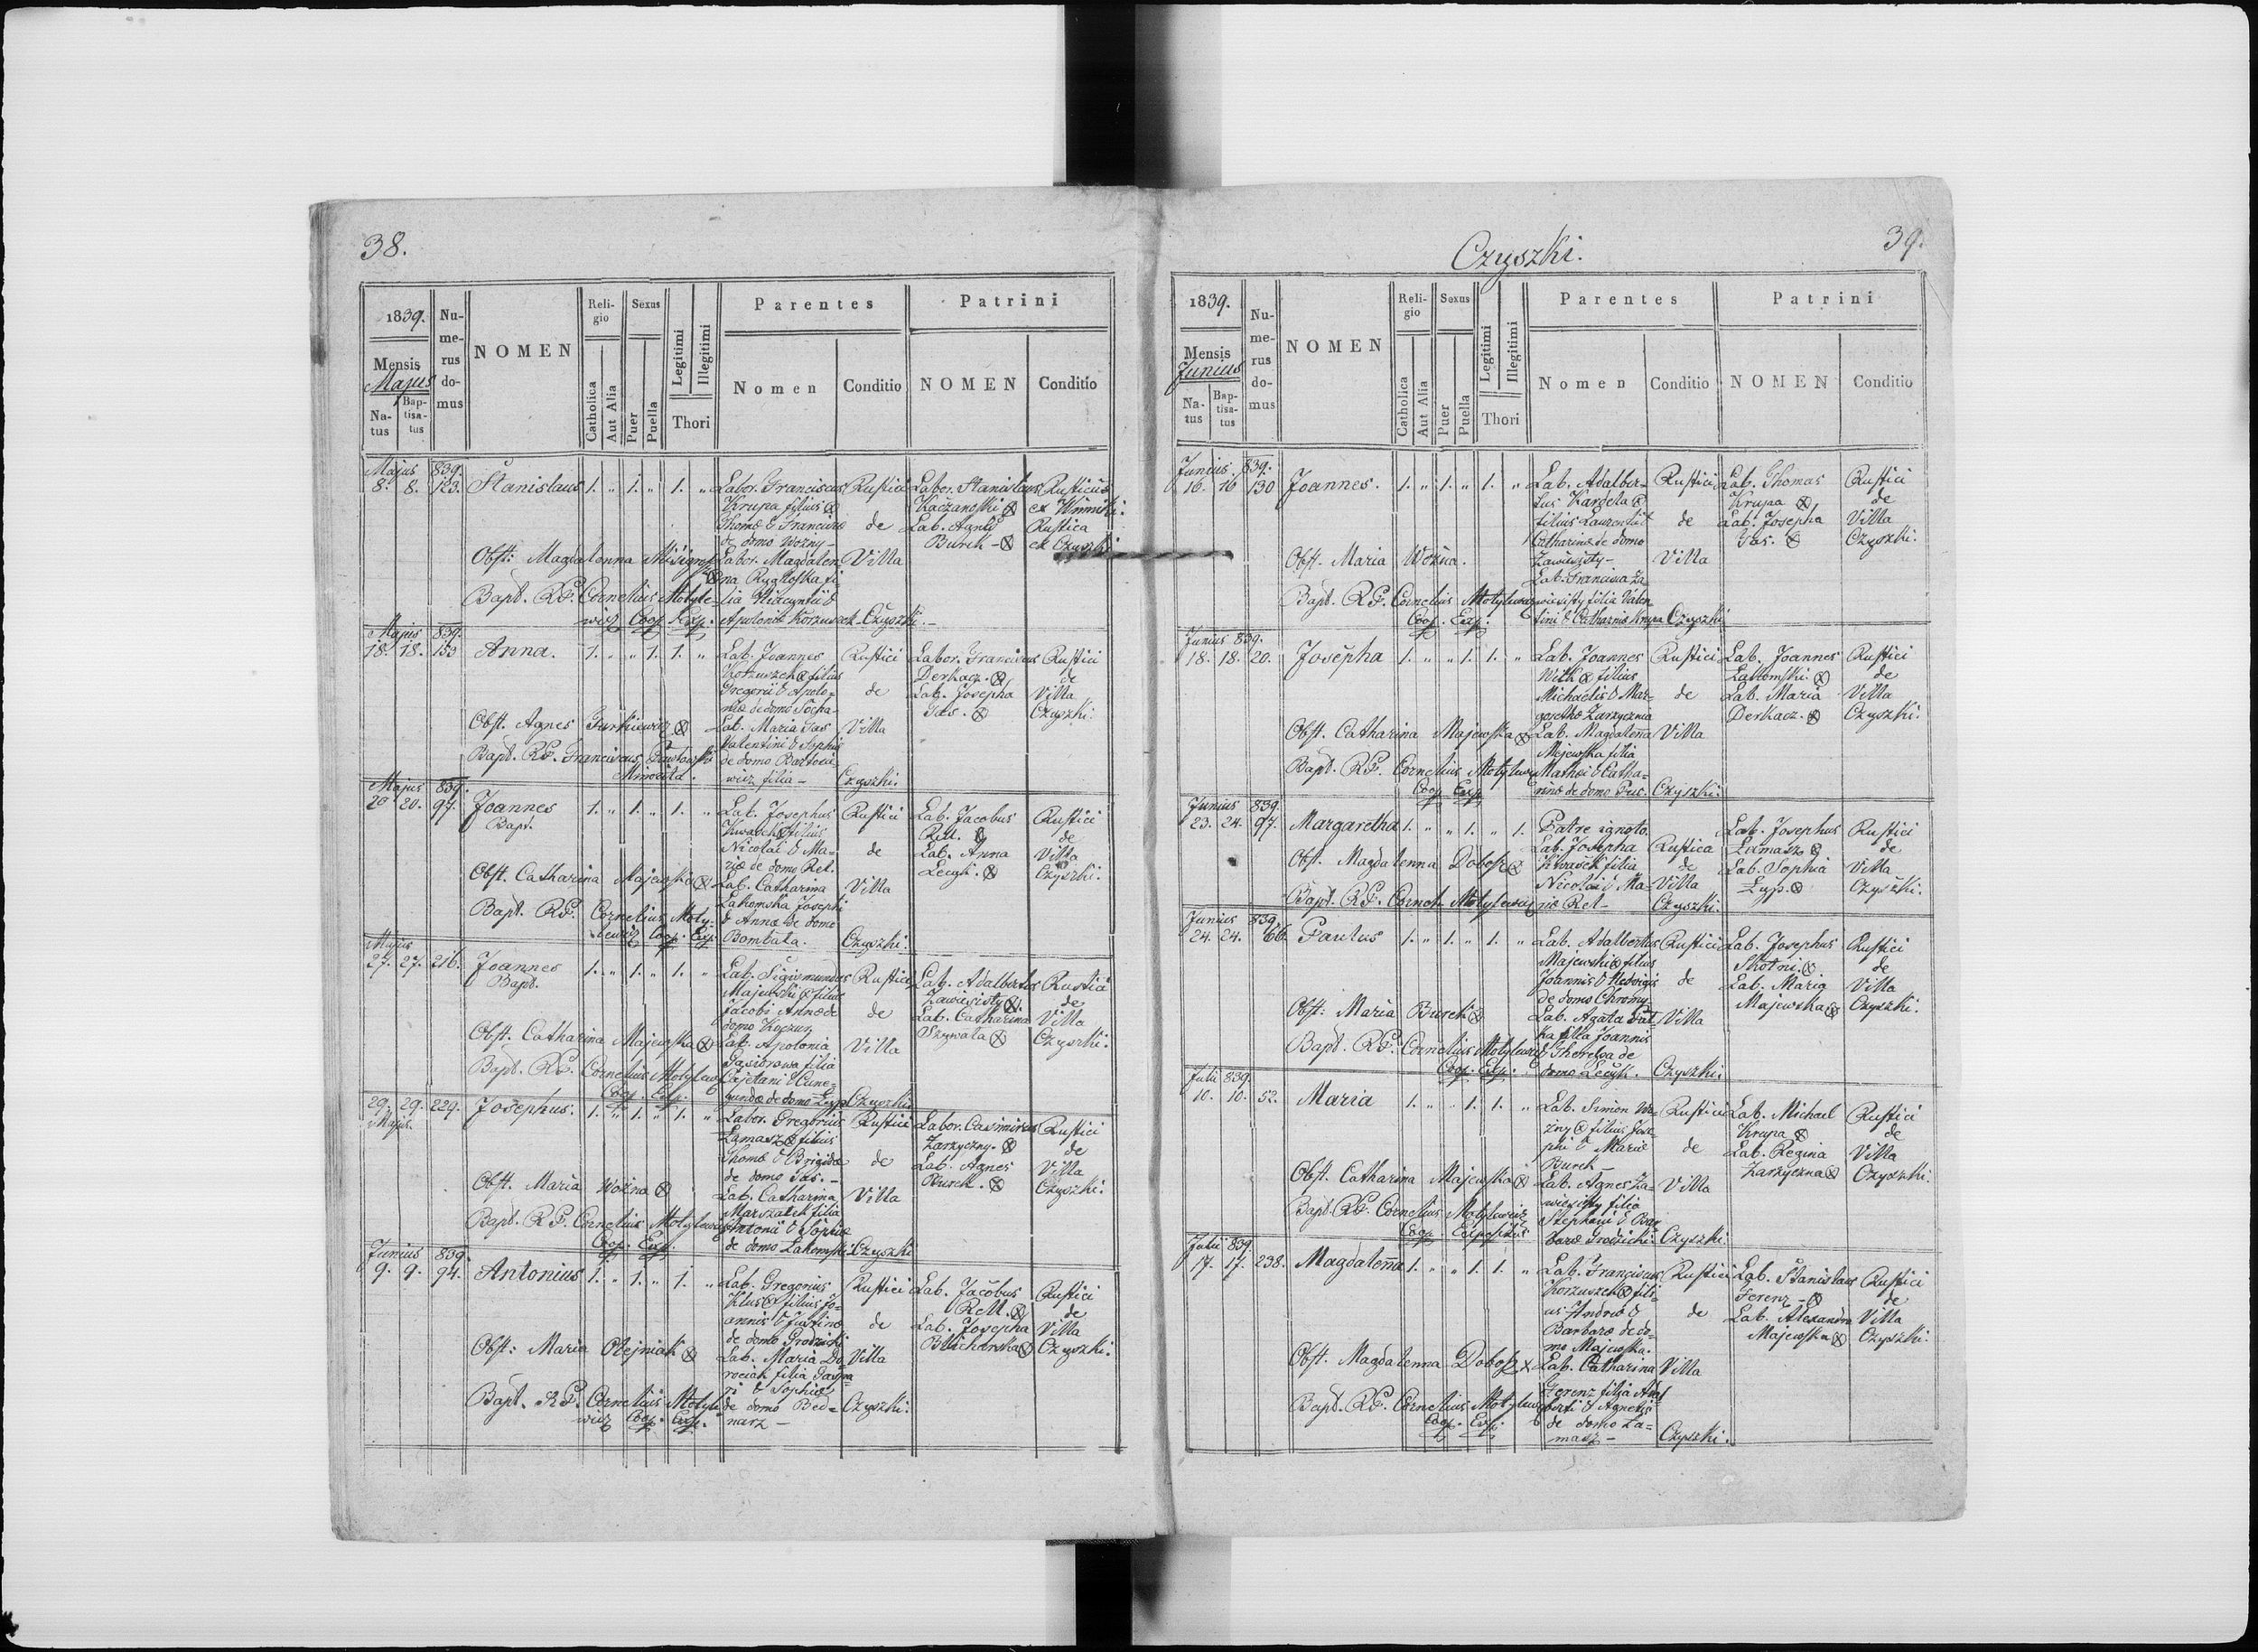 38.
1839.
Mensis
Majus
Na-
tus
Bap-
tisa-
tus
Nu-
me-
rus
do-
mus
NOMEN
Reli-
gio
Catholica
Aut Alia
Sexus
Puer
Puella
Legitimi
Illegitimi
Thori
Parentes
Nomen
Conditio
Patrini
NOMEN
Conditio
Majus 839.
8. 8. 123. Stanislaus 1. " 1. " 1. " Labor. Franciscus Rustici Labor. Stanislaus Rusticus
Krupa filius
Thomæ & Franciscæ de Lab. Agnes Rustica
de domo Wozny- Burek - ex Czyszki
Obst: Magdalenna Labor. Magdalen Villa
Bapt. R.P. Cornelius Motyle-
wicz Coop. Exp. Apolonia Korzuszek - Czyszki.
Majus 839.
18. 18. 153 Anna. 1. " " 1. 1. " Lab. Joannes Rustici Labor. Franciscus Rustici
Korzuszek filius Derkacz. de
Gregorii & Apolo- de Lab. Josepha Villa
niæ de domo Socha- Gas. Czyszki.
Obst. Agnes Lab. Maria Gas Villa
Valentini & Sophiæ
Bapt. R.P. Franciscus de domo Bartosie
wicz filia - Czyszki.
Majus 839.
20 20. 97. Joannes 1. " 1. " 1. " Lab. Josephus Rustici Lab. Jacobus Rustici
Bapt. Kwasek filius Rell. de
Nicolai & Ma- de Lab. Anna Villa
riæ de domo Ret. Lecyk. Czyszki.
Obst. Catharina Majewska Lab. Catharina Villa
Lakomska Josephi
Bapt. R.P. Cornelius Moty- & Annæ de domo
lewicz Coop. Exp. Bombala. Czyszki.
Majus
27. 27. 216. Joannes 1. " 1. " 1. " Lab. Sigismundus Rustici Lab. Adalbertus Rustici
Bapt. Majewski filius Zawiesisty de
Jacobi Annæ de de Lab. Catharina Villa
domo Szywala Czyszki.
Obst. Catharina Majewska Lab. Apolonia Villa
Gasiorowa filia
Bapt. R.P. Cornelius Motylew Cajetani & Cune-
Coop. Exp. gundæ de domo Zyp Czyszki
29. 29. 229. Josephus. 1. " 1. " 1. " Labor. Gregorius Rustici Labor. Casimirus Rustici
Majus. Lamasz filius Zarzyczny. de
Thomæ & Brigidæ de Lab. Agnes Villa
de domo Gas. - Burek. Czyszki.
Obst. Maria Wozna Lab. Catharina Villa
Marszalek filia
Bapt. R.P. Cornelius Motylewicz Antonii & Sophiæ
Coop. Exp. de domo Lakomski Czyszki
Junius 839.
9. 9. 94. Antonius 1. " 1. " 1. " Lab. Gregorius Rustici Lab. Jacobus Rustici
Klus filius Jo- Rell. de
annis & Justinæ de Lab. Josepha Villa
de domo Grodzicki Czyszki.
Obst: Maria Olejniak Lab. Maria Do- Villa
rociak filia Gaspa-
ri & Sophiæ
Bapt. R.P. Cornelius Motyle de domo Bed- Czyszki.
wicz Coop. Exp. narz -
Czyszki.
39.
1839.
Mensis
Junius
Na-
tus
Bap-
tisa-
tus
Nu-
me-
rus
do-
mus
NOMEN
Reli-
gio
Catholica
Aut Alia
Sexus
Puer
Puella
Legitimi
Illegitimi
Thori
Parentes
Nomen
Conditio
Patrini
NOMEN
Conditio
Junius 839.
16. 16 130 Joannes. 1. " 1. " 1. " Lab. Adalber- Rustici Lab. Thomas Rustici
tus Kardela Krupa de
filius Laurentii & de Lab. Josepha Villa
Catharinæ de domo Gas. Czyszki.
Obst. Maria Wozna. Zawiesisty - Villa
Lab. Francisca Za
Bapt. R.P. Cornelius Motylewicz wiesisty filia Valen
Coop. Exp. tini & Catharinæ Krupa Czyszki
Junius 839.
18. 18. 20. Josepha 1. " " 1. 1. " Lab. Joannes Rustici Lab. Joannes Rustici
Wilk filius Lakomski. de
Michaelis & Mar- de Lab. Maria Villa
garethæ Zarzycznia Derkacz. Czyszki.
Obst. Catharina Majewska Lab. Magdalenna Villa
Majewska filia
Bapt. R.P. Cornelius Motylewicz Mathæi & Catha-
Coop Exp rinæ de domo Czyszki.
Junius 839.
23. 24. 97. Margaretha 1. " " 1. " 1. Patre ignoto. Lab. Josephus Rustici
Lab. Josepha Rustica Lamasz de
Obst. Magdalenna Dobosz Kwasek filia de Lab. Sophia Villa
Nicolai & Ma- Villa Zyp. Czyszki.
Bapt. R.P. Cornel. Motylewicz riæ Ret - Czyszki.
Junius 839.
24. 24. 66. Paulus 1. " 1. " 1. " Lab. Adalbertus Rustici Lab. Josephus Rustici
Majewski filius Skotni. de
Joannis & Hedvigis de Lab. Maria Villa
de domo Chromy. Majewska Czyszki.
Obst: Maria Burek Lab. Agata Villa
ka filia Joannis
Bapt. R.P. Cornelius Motylewicz & Theresa de
Coop. Exp. domo Lecyk. Czyszki.
Julii 839.
10. 10. 52. Maria 1. " " 1. 1. " Lab. Simon Wo- Rustici Lab. Michael Rustici
zny filius Jose- Krupa de
phi & Mariæ de Lab. Regina Villa
Burek Zarzyczna Czyszki.
Obst. Catharina Majewska Lab. Agnes Za- Villa
wiesisty filia
Bapt. R.P. Cornelius Motylewicz Stephani & Bar
Coop. Expositus baræ Grodzicki. Czyszki.
Julii 839.
17. 17. 238. Magdalenna 1. " " 1. 1. " Lab. Franciscus Rustici Lab. Stanislaus Rustici
Korzuszek fili- Ferenz - de
us Andreæ & de Lab. Alexandra Villa
Barbaræ de do- Majewska Czyszki.
mo Majewska.
Obst. Magdalenna Dobosz x Lab. Catharina Villa
Ferenz filia Adal
Bapt. R.P. Cornelius Motylewicz berti & Agnetis
Coop. Exp. de domo La-
masz - Czyszki.